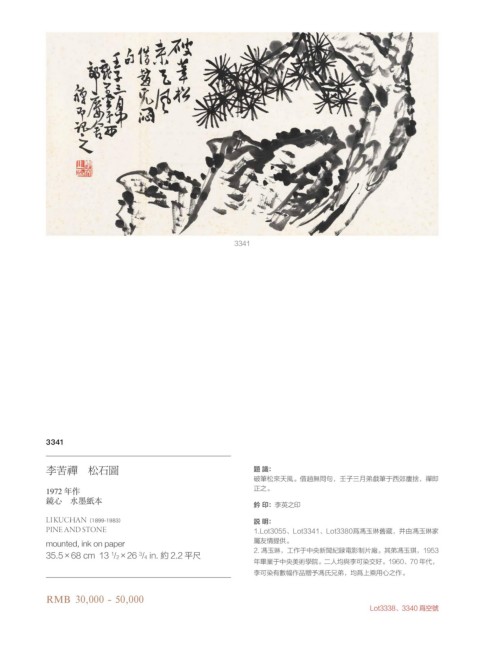 破筆松
來天風
借趙无悶
句
壬子三月中
3341
3341
李苦禪　松石圖
1972 年作
鏡心　水墨紙本
LI KUCHAN (1899-1983)
PINE AND STONE
mounted, ink on paper
35.5 × 68 cm 13 1/2 × 26 3/4 in. 約 2.2 平尺
RMB 30,000 – 50,000
題 識：
破筆松來天風。借趙無悶句，壬子三月弟戲筆于西郊廔捨，禪即
正之。
鈐 印：李英之印
說 明：
1.Lot3055、Lot3341、Lot3380爲馮玉琳舊藏，并由馮玉琳家
屬友情提供。
2. 馮玉琳，工作于中央新聞紀錄電影制片廠。其弟馮玉琪，1953
年畢業于中央美術學院。二人均與李可染交好。1960、70 年代，
李可染有數幅作品贈予馮氏兄弟，均爲上乘用心之作。
Lot3338、3340 爲空號